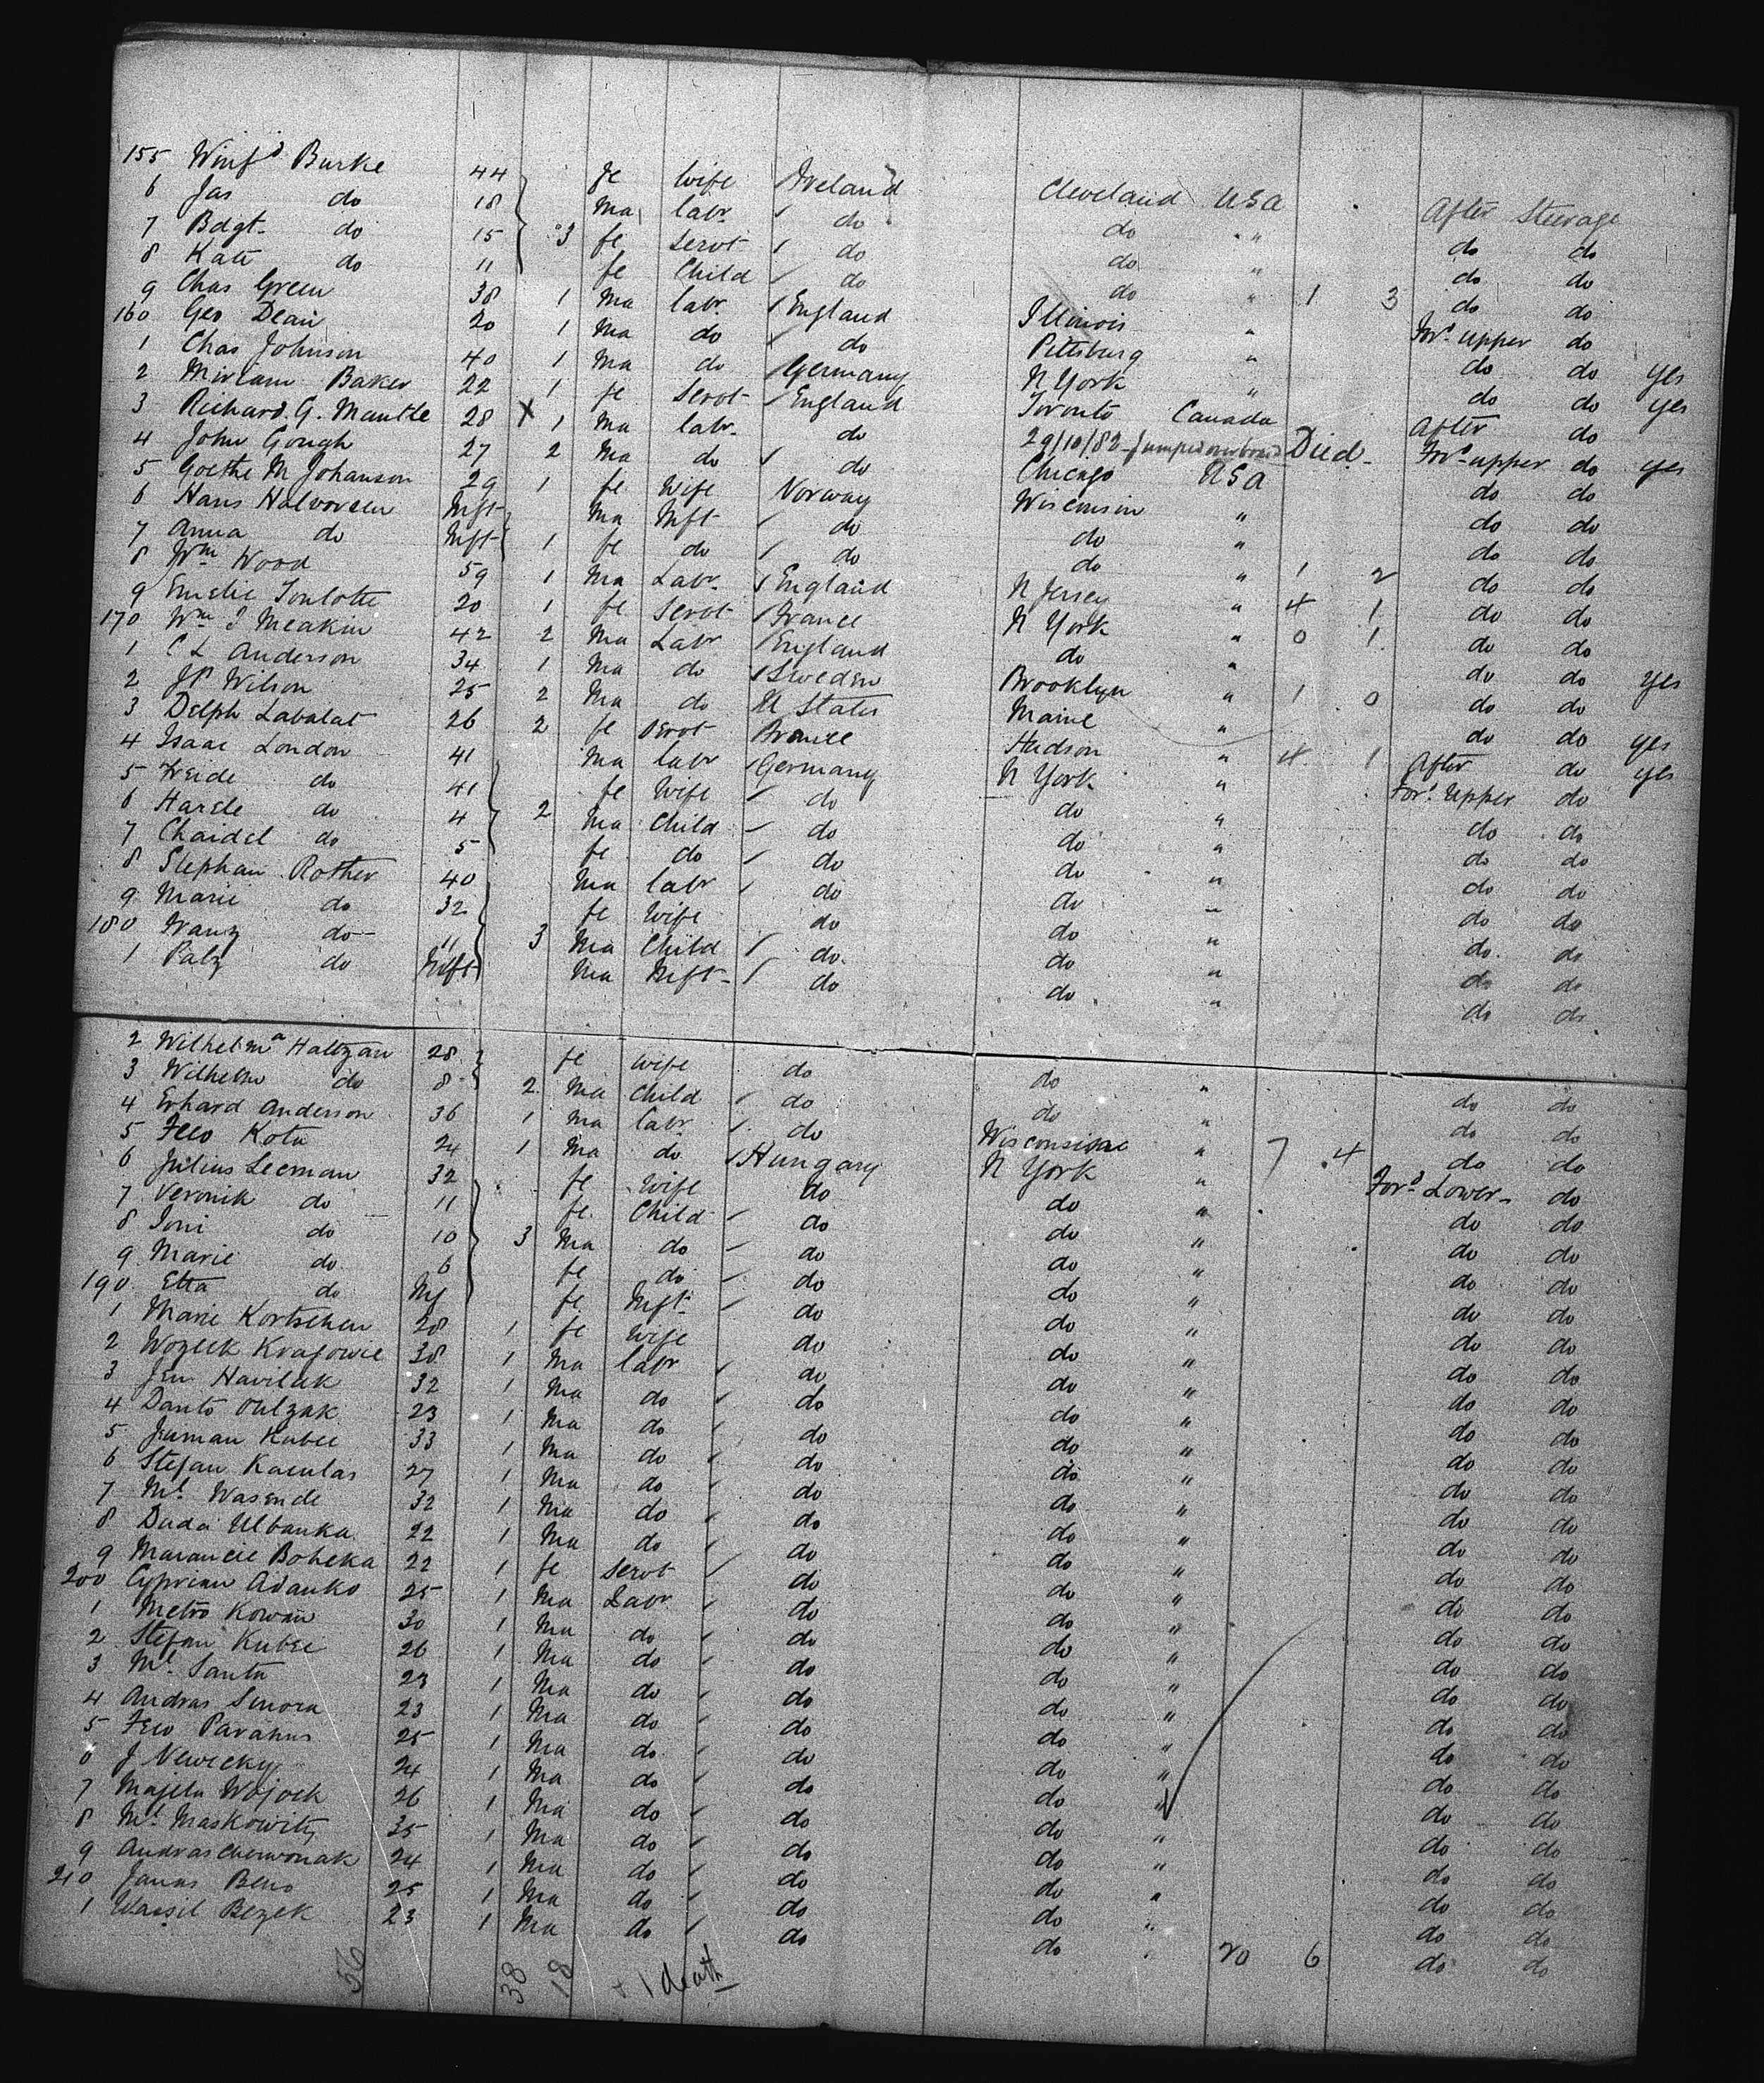 155 Winfd Burke 44 fe Wife Ireland Cleveland USA After Steerage
6 Jas do 18 Ma labr do do " do do
7 Bdgt do 15 3 fe Servt do do " do do
8 Kate do 11 fe Child do do " 1 3 do do
9 Chas Green 38 1 Ma labr England Illinois " Ford upper do
160 Geo Dean 20 1 Ma do do Pittsburg " do do yes
1 Chas Johnson 40 1 Ma do Germany N York " do do yes
2 Miriam Baker 22 1 fe Servt England Toronto Canada After do
3 Richard. G. Mantle 28 X 1 Ma labr do 29/10/82 Jumped overboard Died Ford upper do yes
4 John Gough 27 2 Ma do do Chicago USA do do
5 Goethe M Johanson 29 1 fe Wife Norway Wisconsin " do do
6 Hans Halvorsen Inft Ma Inft do do " do do
7 Anna do Inft 1 fe do do do " 1 2 do do
8 Wm Wood 59 1 Ma Labr England N Jersey " 4 1 do do
9 Emelie Toulotte 20 1 fe Servt France N York " 0 1 do do
170 Wm J Meakin 42 2 Ma Labr England do " do do yes
1 C L Anderson 34 1 Ma do Sweden Brooklyn " 1 0 do do
2 JP Wilson 25 2 Ma do U States Maine " do do yes
3 Delph Labalat 26 2 fe Servt France Hudson " 4 1 After do yes
4 Isaac London 41 Ma labr Germany N York " Ford Upper do
5 Freide do 41 fe Wife do do " do do
6 Harele do 4 2 Ma Child do do " do do
7 Chaidel do 5 fe do do do " do do
8 Stephan Rother 40 Ma labr do do " do do
9 Marie do 32 fe Wife do do " do do
180 Franz do 11 3 Ma Child do do " do do
1 Palz do Inft Ma Inft do do " do do
2 Wilhelma Haltzan 28 fe Wife do do " do do
3 Wilhelm do 8 2 Ma Child do do " do do
4 Erhard Anderson 36 1 Ma labr do Wisconsin " 7 4 do do
5 Feco Kota 24 1 Ma do Hungary N York " Ford Lower do
6 Julius Leeman 32 fe Wife do do " do do
7 Veronik do 11 fe Child do do " do do
8 Joni do 10 3 Ma do do do " do do
9 Marie do 6 fe do do do " do do
190 Etta do Inf fe Inft do do " do do
1 Marie Kortschen 28 1 fe Wife do do " do do
2 Wozeek Krajowie 38 1 Ma labr do do " do do
3 Jen Havilak 32 1 Ma do do do " do do
4 Danto Oulzak 23 1 Ma do do do " do do
5 Juman Kubec 33 1 Ma do do do " do do
6 Stefan Kaculas 27 1 Ma do do do " do do
7 Ml Wasende 32 1 Ma do do do " do do
8 Duda Ulbanka 22 1 Ma do do do " do do
9 Marancie Boheka 22 1 fe Servt do do " do do
200 Cyprian Adanko 25 1 Ma Labr do do " do do
1 Metro Kowan 30 1 Ma do do do " do do
2 Stefan Kubei 26 1 Ma do do do " do do
3 Ml Santa 23 1 Ma do do do " do do
4 Andras Senora 23 1 Ma do do do " do do
5 Feco Parahus 25 1 Ma do do do " do do
6 J Newicky 24 1 Ma do do do " do do
7 Majeta Wojock 26 1 Ma do do do " do do
8 Ml Maskowitz 35 1 Ma do do do " do do
9 Andras Cherwonak 24 1 Ma do do do " do do
210 Janas Beno 25 1 Ma do do do " do do
1 Wassil Bezek 23 1 Ma do do do " 20 6 do do
56 38 18 + 1 death